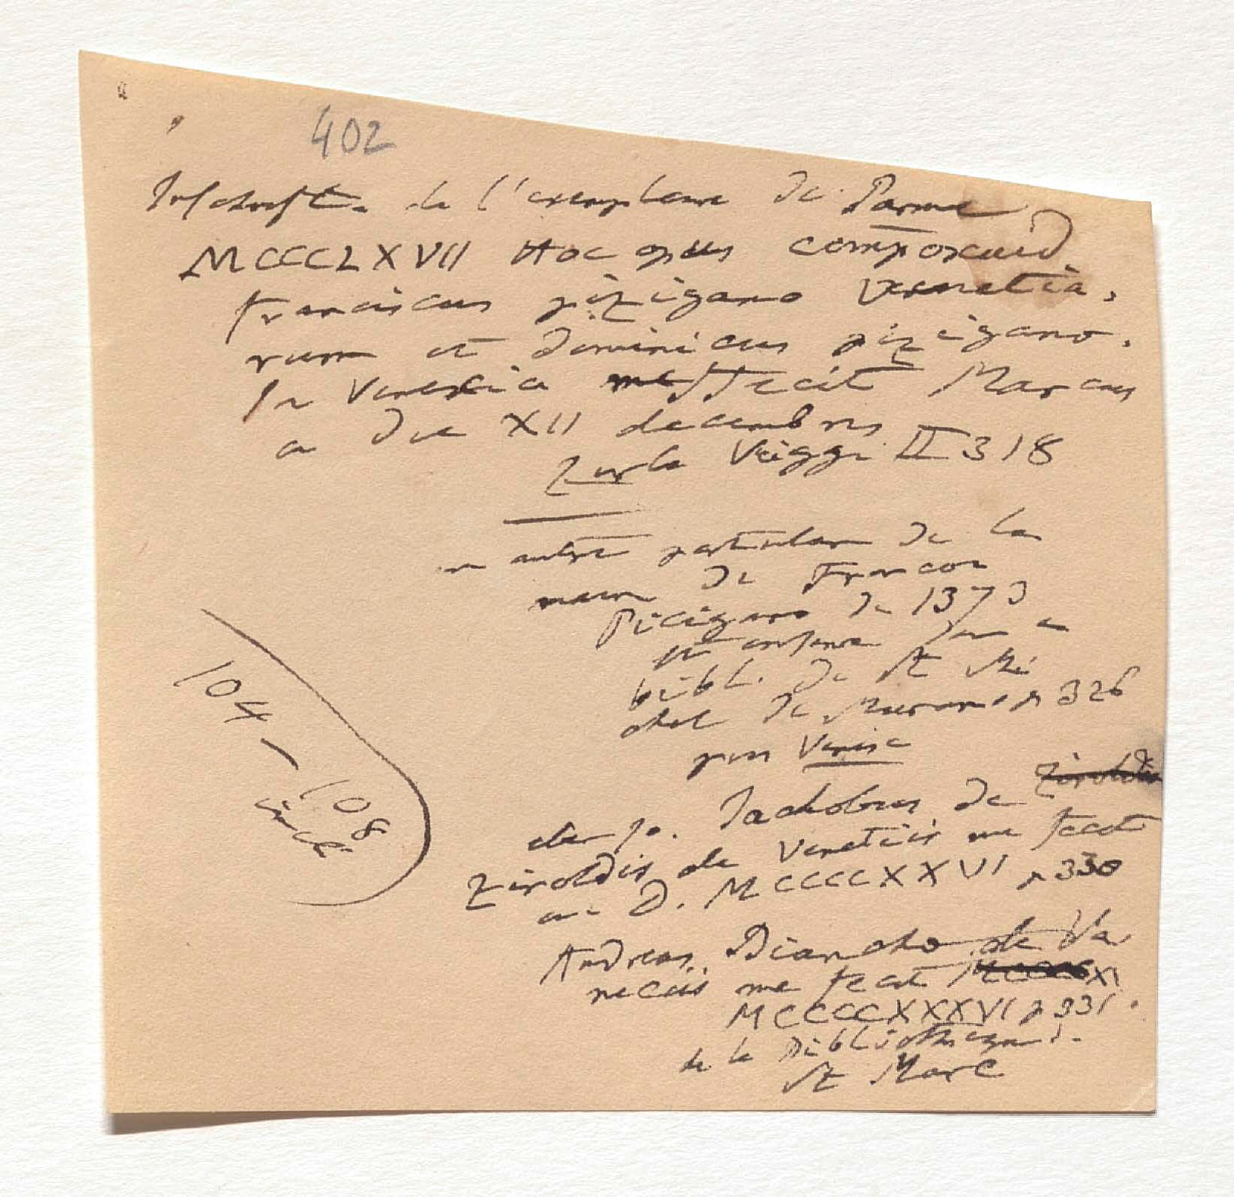 402
Inschrift. de l'exemplaire de Parme
MCCCLXVII Hoc opus composuid
franciscus pizigano Venetia,
rum et dominicus pizigano.
In Venexia meffecit Marcus
a die XII decembris
Zurla Viaggi II 318
un autre portulan de la
main de Francois
Picigano de 1373
se conserve dans la
bibl. de St Mi
chel de Murano p 326
pres Venise
eben so. Jachobus de Ziroldis
Ziroldis de Veneciis me fecit
an. D. MCCCCXXVI p 330
Andreas Biancho de Ve
neciis me fecit MCCCCXI
MCCCCXXXVI p 331.
de la Bibliotheque
St Marc
104–108
incl.